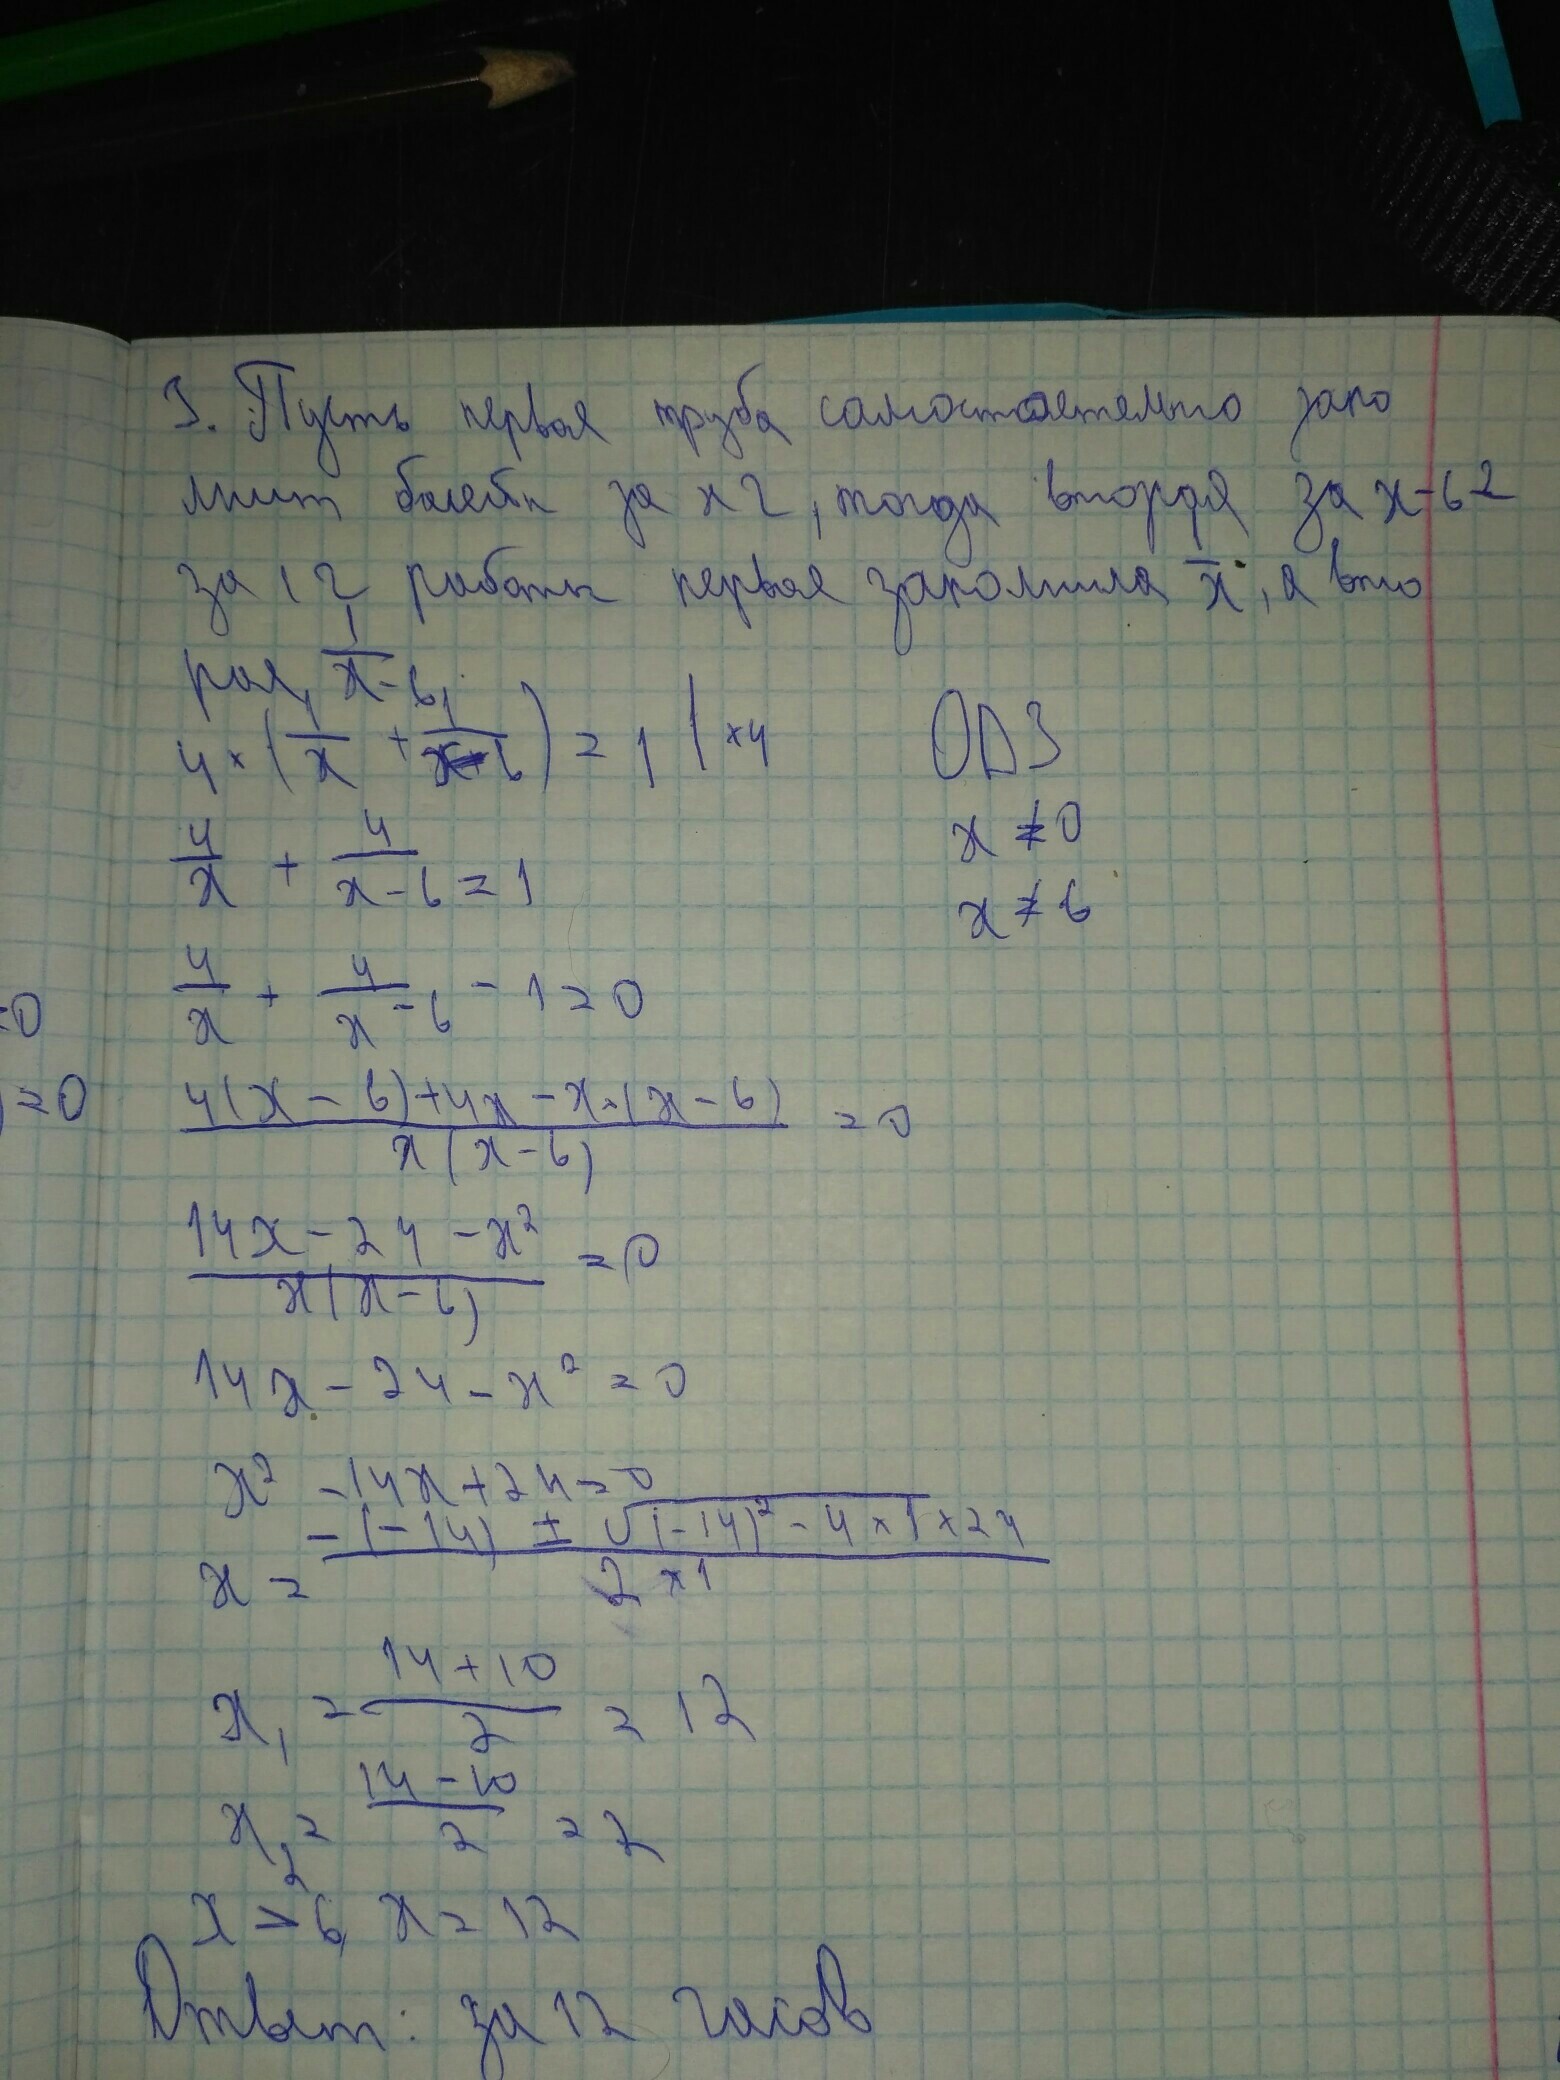 3. Пусть первая труба самостоятельно запо
лнит бассейн за x ч, тогда вторая за x-6 ч
за 1 ч работы первая заполнила 1/x, а вто
рая 1/x-6
4 × (1/x + 1/x-6) = 1 | ×4
ОДЗ
x ≠ 0
x ≠ 6
4/x + 4/x-6 = 1
4/x + 4/x-6 - 1 = 0
=0
)=0
4(x-6)+4x-x·(x-6)/x(x-6) = 0
14x-24-x²/x(x-6) = 0
14x-24-x²=0
x²-14x+24=0
x = -(-14) ± √(-14)²-4×1×24/2×1
x₁ = 14+10/2 = 12
x₂ = 14-10/2 = 2
x > 6, x = 12
Ответ: за 12 часов